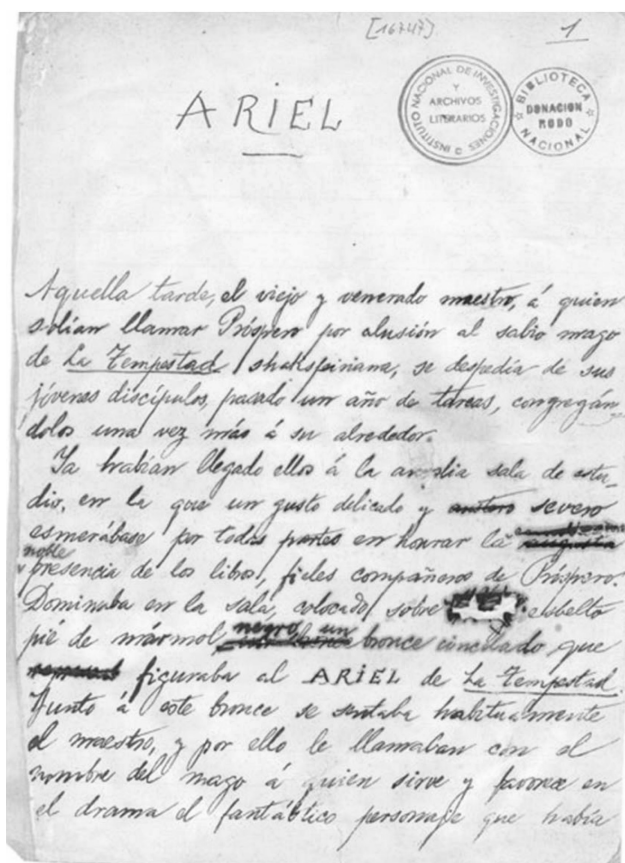 [16747]
1
INSTITUTO NACIONAL DE INVESTIGACIONES
Y
ARCHIVOS
LITERARIOS
BIBLIOTECA
DONACION
RODO
NACIONAL
ARIEL
Aquella tarde, el viejo y venerado maestro, á quien
solían llamar Próspero por alusión al sabio mago
de La Tempestad shakspiriana, se despedía de sus
jóvenes discípulos, pasado un año de tareas, congregán
dolos una vez más á su alrededor.
Ya habían llegado ellos á la amplia sala de estu-
dio, en la que un gusto delicado y austero severo
esmerábase por todas partes en honrar la augusta
noble
presencia de los libros, fieles compañeros de Próspero.
Dominaba en la sala, colocado sobre esbelto
pié de mármol negro, un bronce cincelado que
figuraba al ARIEL de La Tempestad.
Junto á este bronce se sentaba habitualmente
el maestro, y por ello le llamaban con el
nombre del mago á quien sirve y favorece en
el drama el fantástico personaje que había